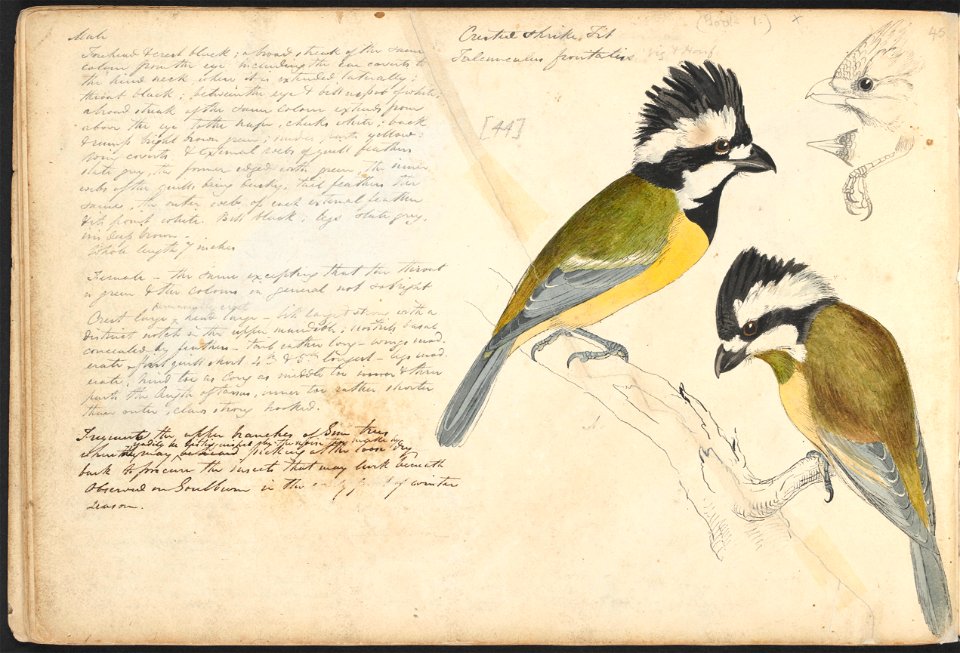 Male
Forehead & crest black; a broad streak of the same
colour from the eye including the ear coverts to
the hind neck where it is extended laterally;
throat black; between the eye & bill a spot of white;
a broad streak of the same colour extends from
above the eye to the nape, cheeks white; back
& rump bright brown green; under parts yellow;
wing coverts & external webs of quill feathers
slate grey, the former edged with green, the inner
webs of the quills being dusky, tail feathers the
same, the outer webs of each external feather
& its point white. Bill black; legs slate grey,
iris deep brown.
Whole length 7 inches
Female – the same excepting that the throat
is green & the colours in general not so bright
permanently erect
Crest large, head large – bill large & strong with a
distinct notch in the upper mandible; nostrils basal
concealed by feathers – tail rather long – wings mod
erate, first quill short 4th & 5th longest – legs mod
erate, hind toe as long as middle toe &
parts the length of tarsus, inner toe rather shorter
than outer, claws strong hooked.
Frequents the upper branches of Gum trees
&
may be heard picking at the loose dry
bark to procure the insects that may lurk beneath
Observed on Goulburn in the of winter
season.
(Good. 1.) x
45
Crested Shrike Tit
Falcunculus frontatus Vig & Horsf
[44]